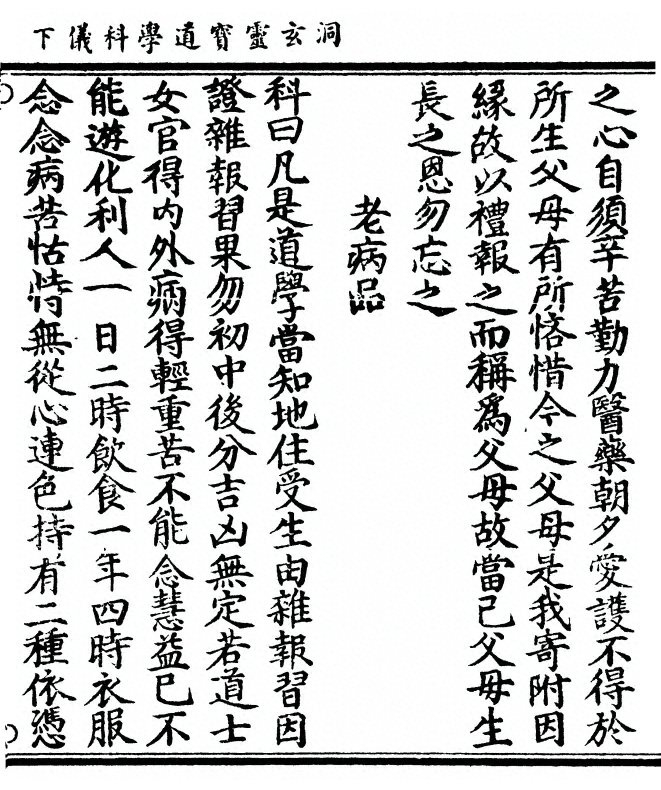 洞玄靈寶道學科儀下
之心自須辛苦勤力醫藥朝夕愛護不得於
所生父母有所悋惜今之父母是我寄附因
緣故以禮報之而稱爲父母故當已父母生
長之恩勿忘之
老病品
科曰凡是道學當知地住受生由雜報習因
證雜報習果勿初中後分吉凶無定若道士
女官得内外病得輕重苦不能念慧益已不
能遊化利人一日二時飲食一年四時衣服
念念病苦怙恃無從心連色持有二種依憑